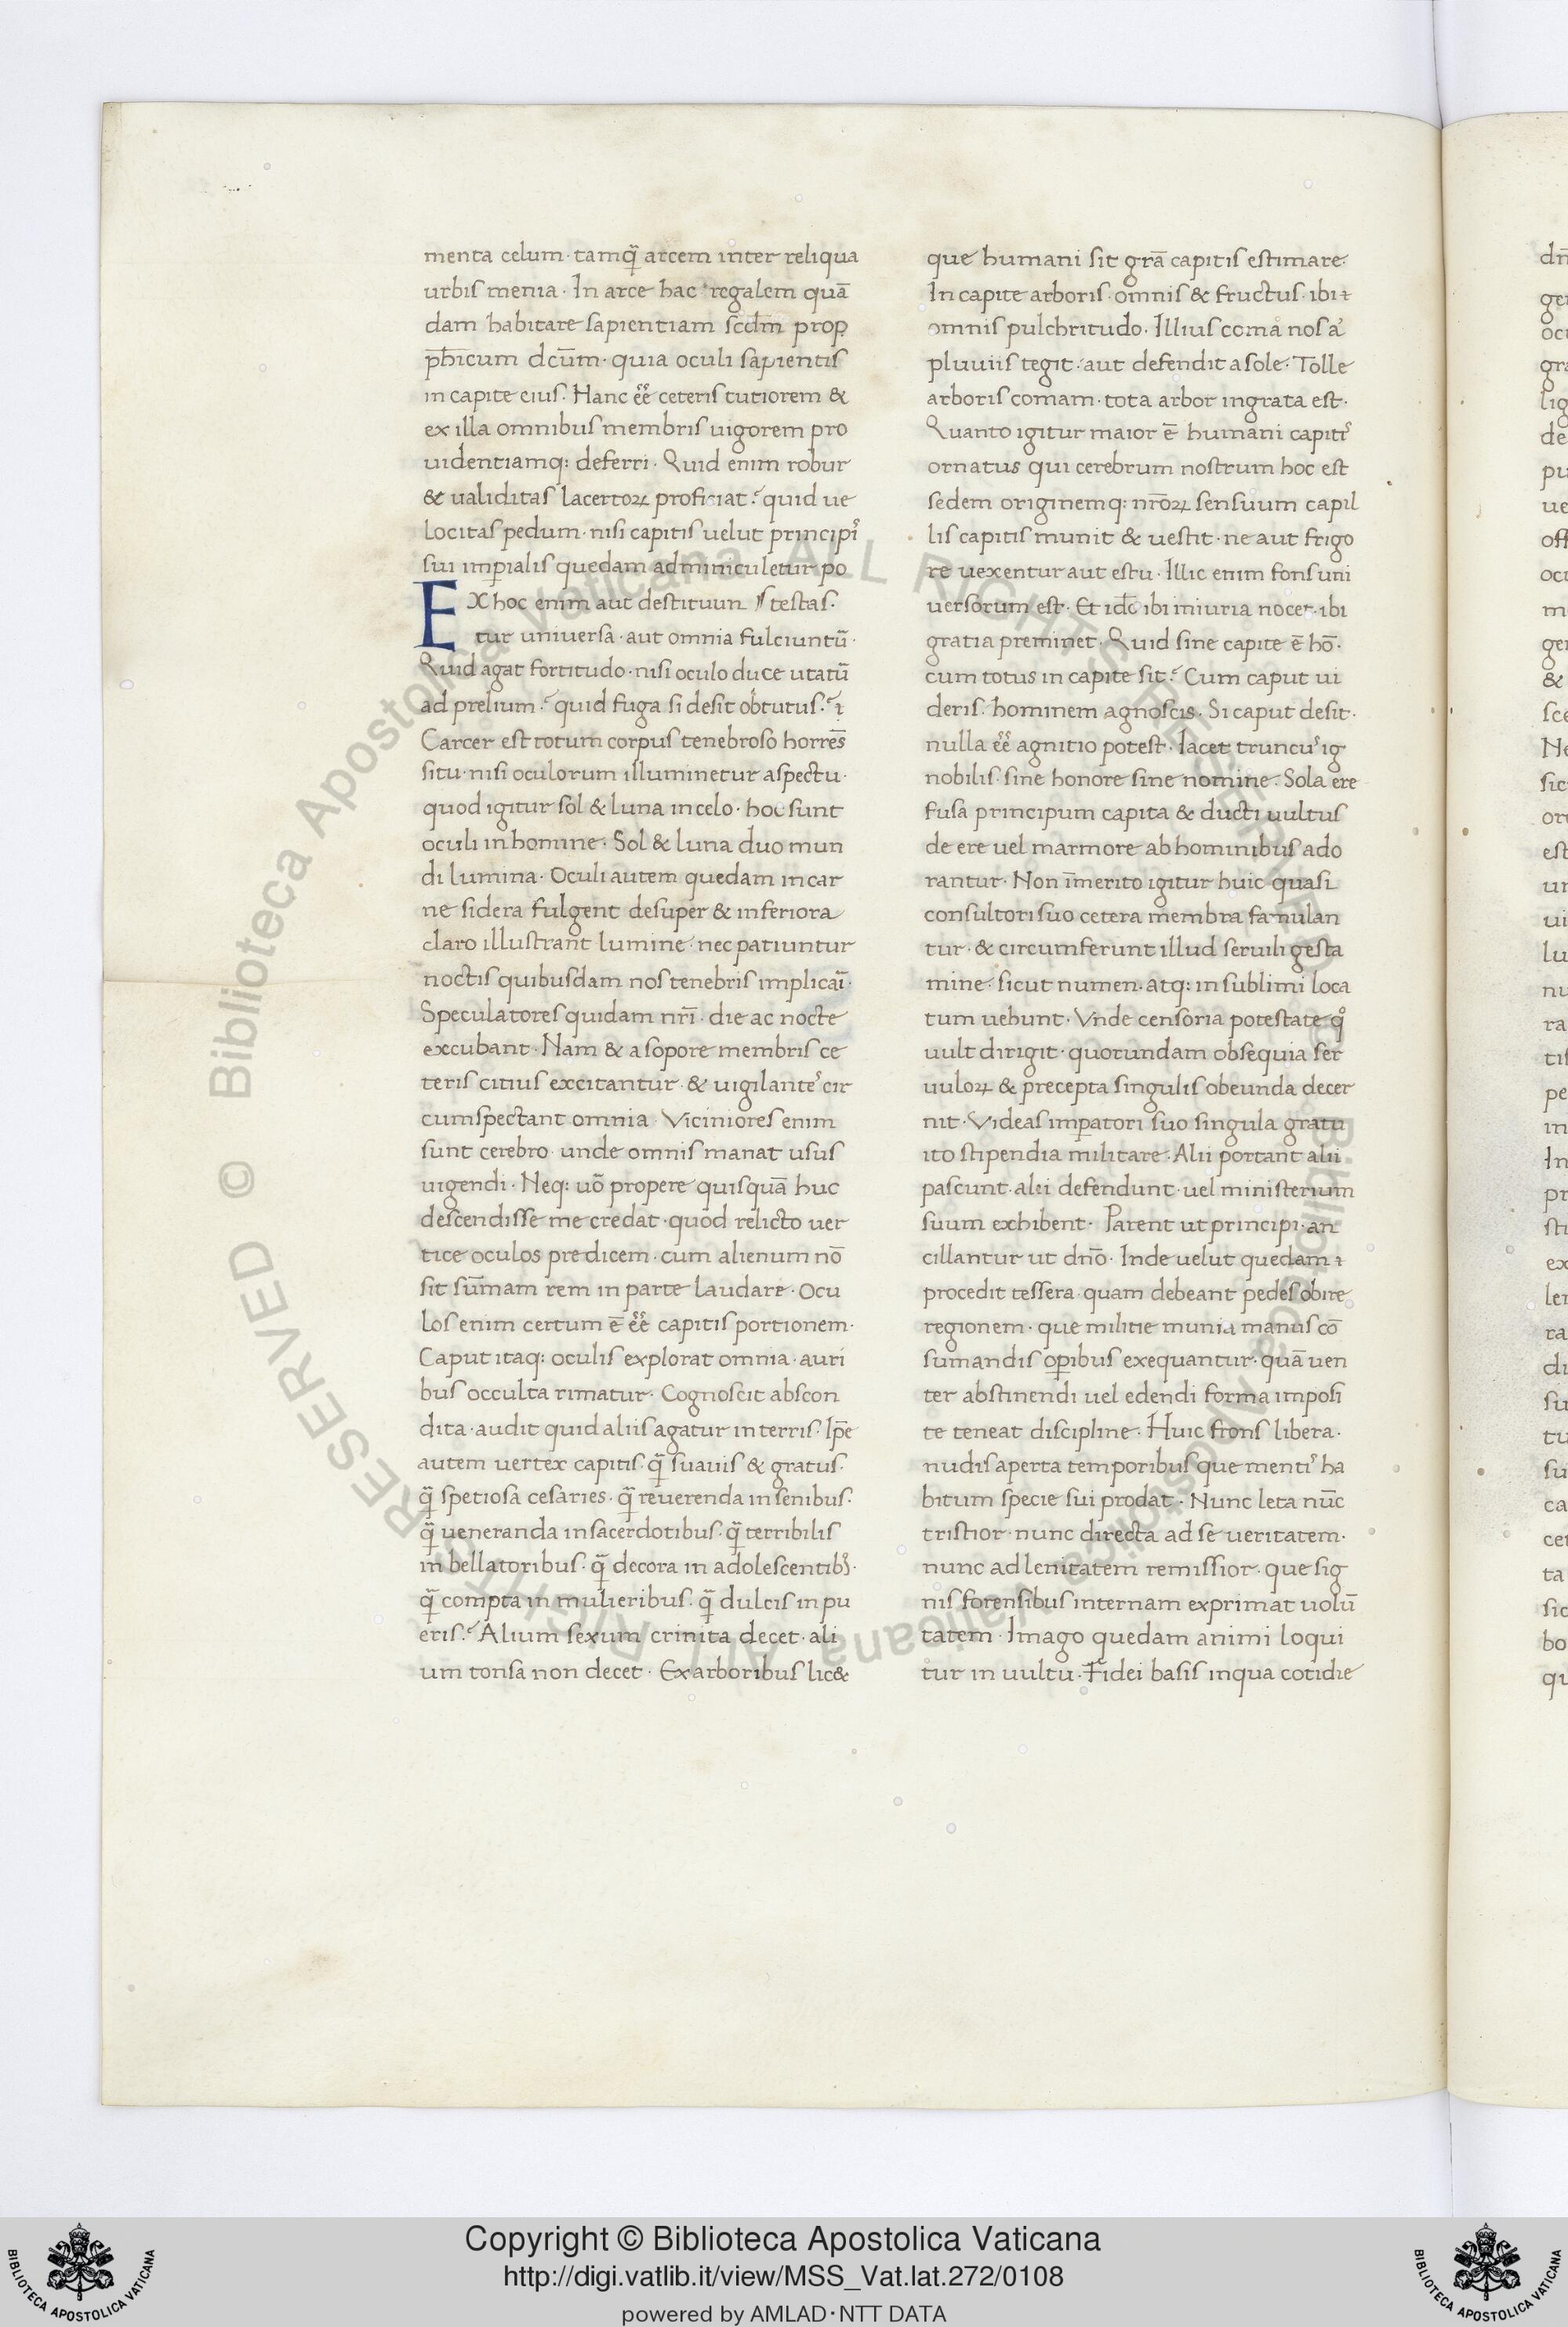 menta celum· tamq̃ arcem inter reliqua
urbis menia· In arce hac regalem quā
dam habitare sapientiam scdm̄ prop
ph̄icum dcūm· quia oculi sapientis
in capite eius· Hanc eē ceteris tutiorem &
ex illa omnibus membris uigorem pro
uidentiamq: deferri· Quid enim robur
& ualiditas lacertoꝝ proficiat? quid ue
locitas pedum· nisi capitis uelut principi᾽
sui imꝑialis quedam adminiculetur po
Ex hoc enim aut destituun testas·
tur uniuersa· aut omnia fulciuntū·
Quid agat fortitudo· nisi oculo duce utatū
ad prelium? quid fuga si desit obtutus?
Carcer est totum corpus tenebroso horrēs
situ· nisi oculorum illuminetur aspectu·
quod igitur sol & luna in celo· hoc sunt
oculi in homine· Sol & luna duo mun
di lumina· Oculi autem quedam in car
ne sidera fulgent desuper & inferiora
claro illustrant lumine· nec patiuntur
noctis quibusdam nos tenebris implicaī·
Speculatores quidam nr̄i· die ac nocte
excubant· Nam & a sopore membris ce
teris citius excitantur· & uigilante᾽ cir
cumspectant omnia· Viciniores enim
sunt cerebro· unde omnis manat usus
uigendi· Neq: uō propere quisquā huc
descendisse me credat· quod relicto uer
tice oculos predicem· cum alienum nō
sit sūmam rem in parte laudare· Ocu
los enim certum ē eē capitis portionem·
Caput itaq: oculis explorat omnia· auri
bus occulta rimatur· Cognoscit abscon
dita· audit quid aliis agatur in terris· Ip̄e
autem uertex capitis· q̃ suauis & gratus·
q̃ spetiosa cesaries· q̃ reuerenda in senibus·
q̃ ueneranda in sacerdotibus· q̃ terribilis
in bellatoribus· q̃ decora in adolescentib᾽·
q̃ compta in mulieribus· q̃ dulcis in pu
eris? Alium sexum crinita decet· ali
um tonsa non decet· Ex arboribus lic&
que humani sit grā capitis estimare·
In capite arboris· omnis & fructus· ibi
omnis pulchritudo· Illius coma nos a᾽
pluuiis tegit· aut defendit a sole· Tolle
arboris comam· tota arbor ingrata est·
Quanto igitur maior ē humani capiti᾽
ornatus qui cerebrum nostrum hoc est
sedem originemq: nr̄oꝝ sensuum capil
lis capitis munit & uestit· ne aut frigo
re uexentur aut estu· Illic enim fons uni
uersorum est· Et idc̄ ibi iniuria nocet· ibi
gratia preminet· Quid sine capite ē hō·
cum totus in capite sit? Cum caput ui
deris· hominem agnoscis· Si caput desit·
nulla eē agnitio potest· Iacet truncu᾽ ig
nobilis· sine honore sine nomine· Sola ere
fusa principum capita & ducti uultus
de ere uel marmore ab hominibus ado
rantur· Non īmerito igitur huic quasi
consultori suo cetera membra famulan
tur· & circumferunt illud seruili gesta
mine· sicut numen· atq: in sublimi loca
tum uehunt· Vnde censoria potestate q᾽
uult dirigit· quorundam obsequia ser
uuloꝝ & precepta singulis obeunda decer
nit· Videas imꝑatori suo singula gratu
ito stipendia militare· Alii portant alii
pascunt· alii defendunt· uel ministerium
suum exhibent· Parent ut principi· an
cillantur ut dnō· Inde uelut quedam
procedit tessera· quam debeant pedes obire
regionem· que militie munia manus cō
sumandis oꝑibus exequantur· quā uen
ter abstinendi uel edendi forma imposi
te teneat discipline· Huic frons libera·
nudis aperta temporibus que menti᾽ ha
bitum specie sui prodat· Nunc leta nūc
tristior· nunc directa ad se ueritatem·
nunc ad lenitatem remissior· que sig
nis forensibus internam exprimat uolū
tatem· Imago quedam animi loqui
tur in uultu· Fidei basis in qua cotidie
© Biblioteca Apostolica Vaticana ALL RIGHTS RESERVED © Biblioteca Apostolica Vaticana ALL RIGHTS RESERVED
Copyright © Biblioteca Apostolica Vaticana
http://digi.vatlib.it/view/MSS_Vat.lat.272/0108
powered by AMLAD·NTT DATA
BIBLIOTECA APOSTOLICA VATICANA
BIBLIOTECA APOSTOLICA VATICANA